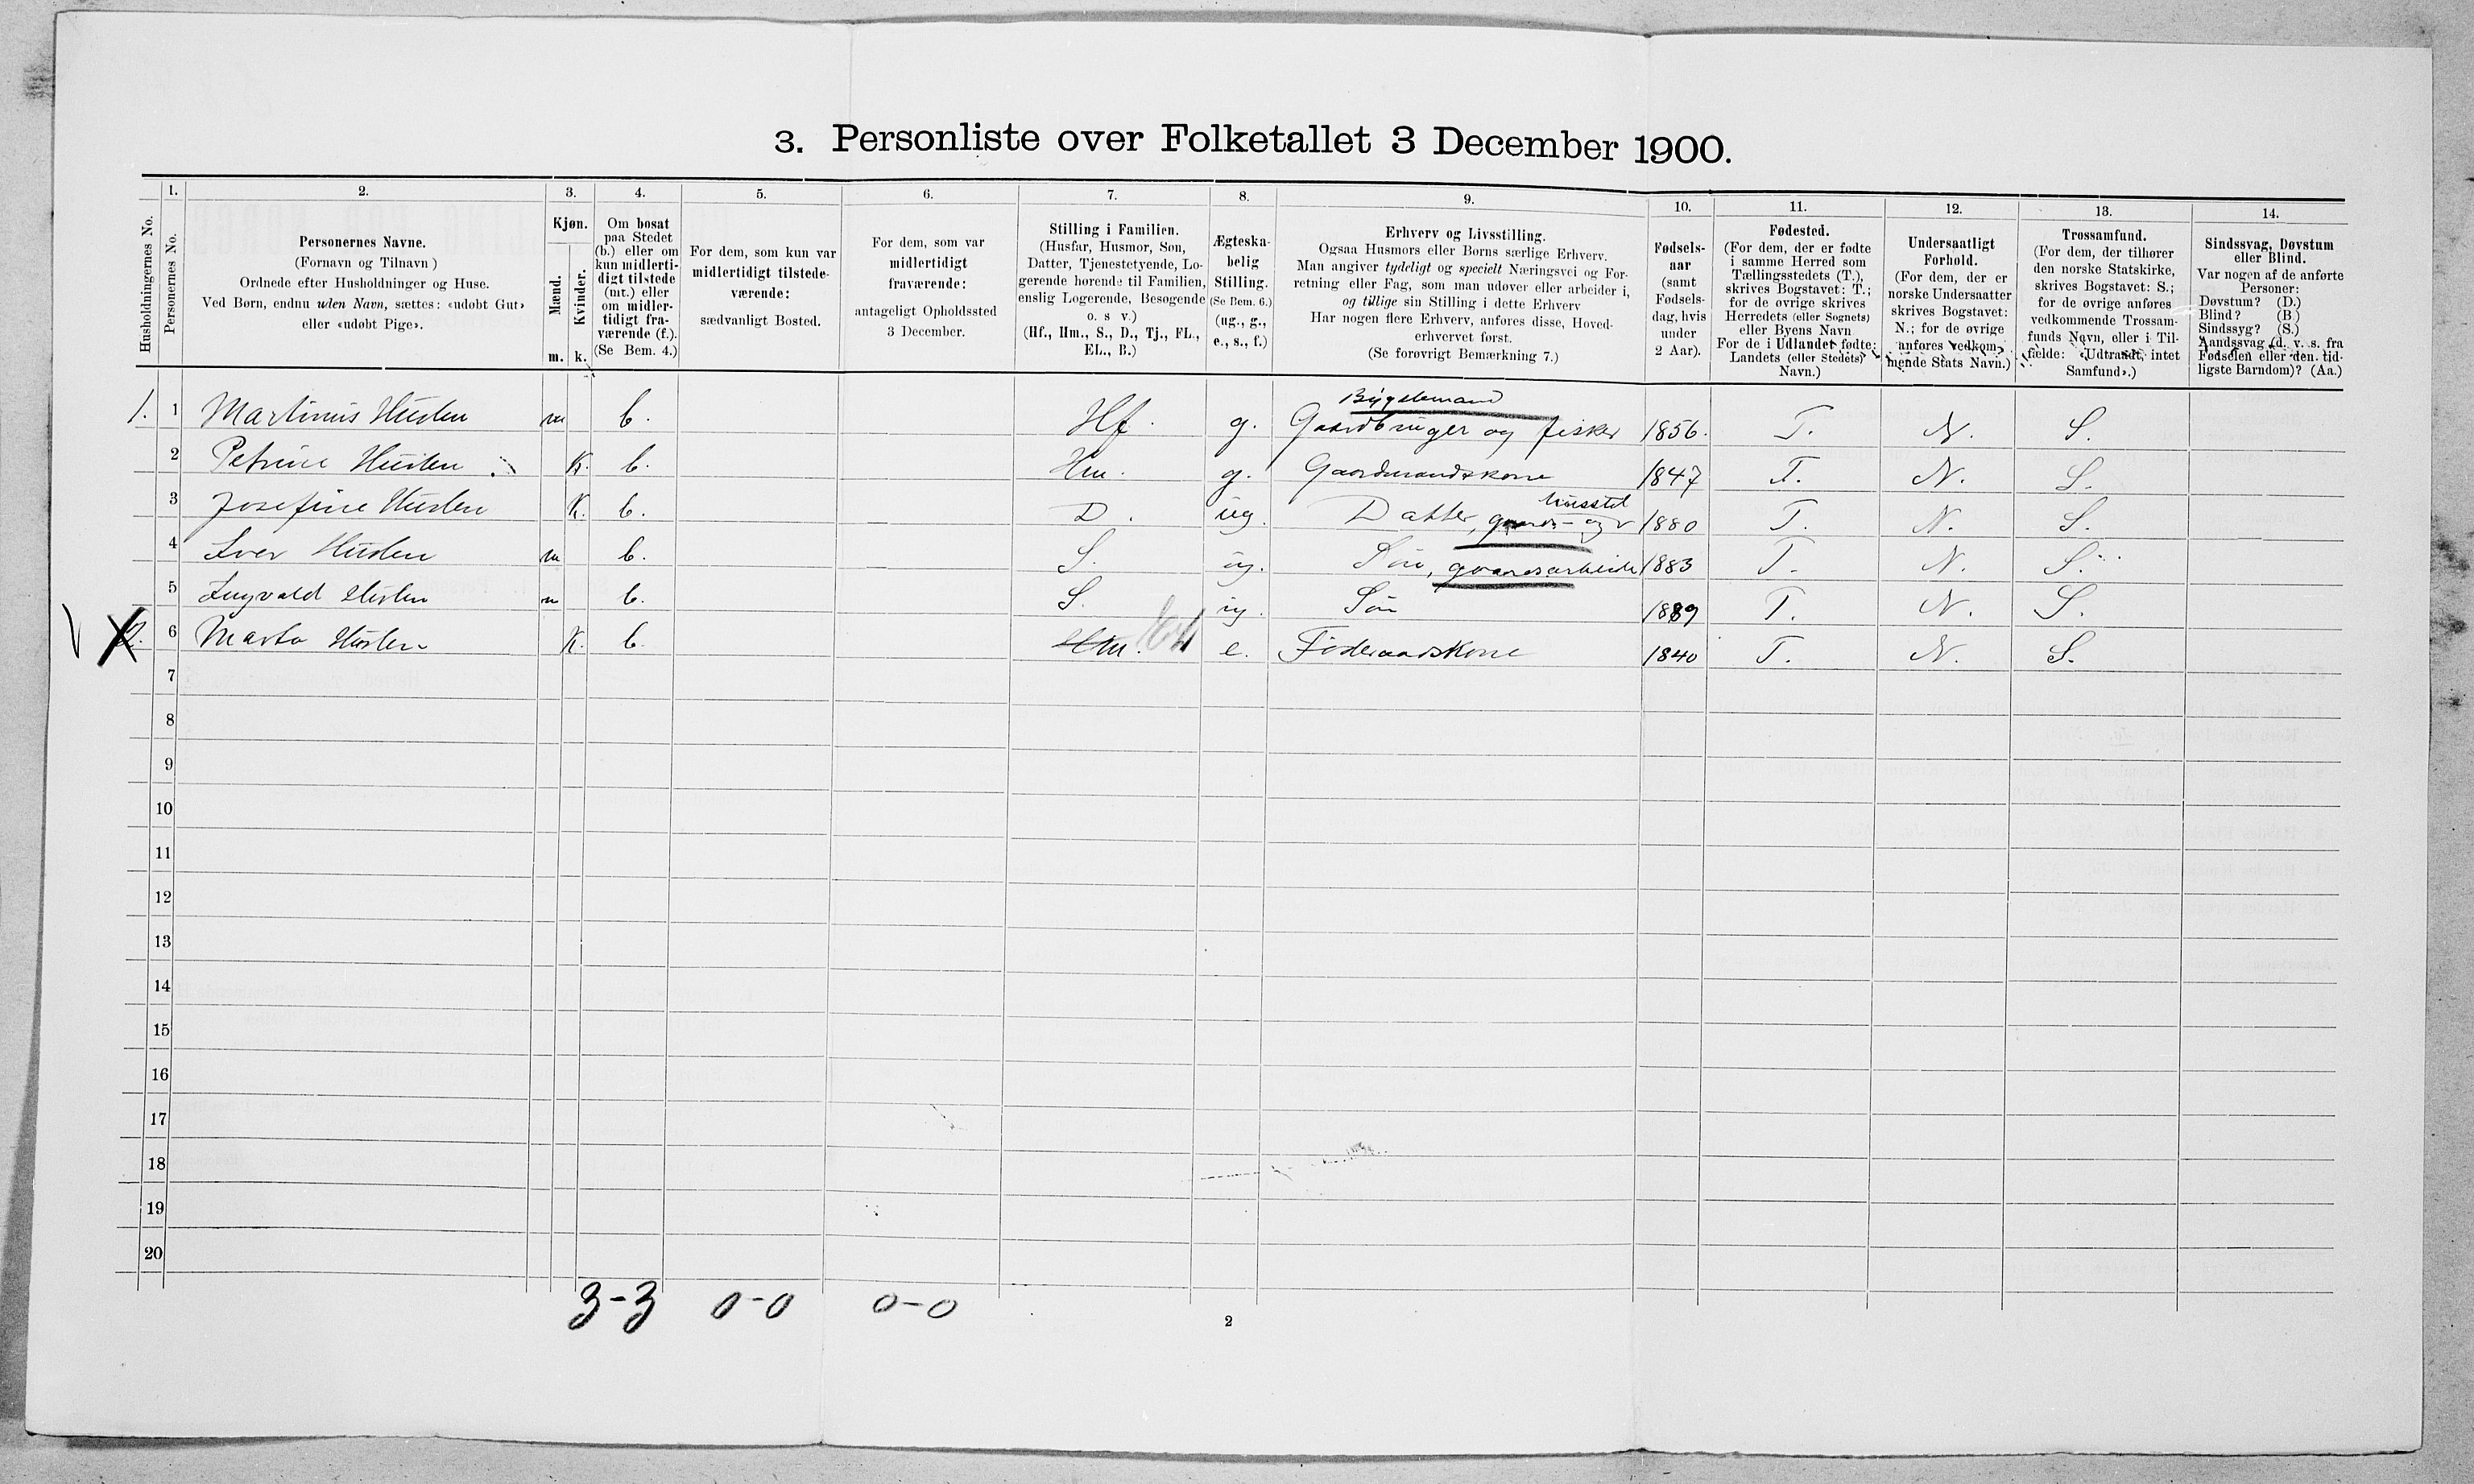 3. Personliste over Folketallet 3 December 1900.
1. 2. 3. 4. 5. 6. 7. 8. 9. 10. 11. 12. 13. 14.
Husholdningernes No.
Personernes No.
Personernes Navne.
(Fornavn og Tilnavn)
Ordnede efter Husholdninger og Huse.
Ved Børn, endnu uden Navn, sættes: «udøbt Gut»
eller «udøbt Pige».
Kjøn.
Mænd.
Kvinder.
m. k.
Om bosat
paa Stedet
(b.) eller om
kun midlerti-
digt tilstede
(mt.) eller
om midler-
tidigt fra-
værende (f.).
(Se Bem. 4.)
For dem, som kun var
midlertidigt tilstede-
værende:
sædvanligt Bosted.
For dem, som var
midlertidigt
fraværende:
antageligt Opholdssted
3 December.
Stilling i Familien.
(Husfar, Husmor, Søn,
Datter, Tjenestetyende, Lo-
gerende hørende til Familien,
enslig Logerende, Besøgende
o. s v.)
(Hf., Hm., S., D., Tj., FL.,
EL., B.)
Ægteska-
belig
Stilling.
(Se Bem. 6.)
(ug., g.,
e., s., f.)
Erhverv og Livsstilling.
Ogsaa Husmors eller Børns særlige Erhverv.
Man angiver tydeligt og specielt Næringsvei og For-
retning eller Fag, som man udøver eller arbeider i,
og tillige sin Stilling i dette Erhverv
Har nogen flere Erhverv, anføres disse, Hoved-
erhvervet først.
(Se forøvrigt Bemærkning 7.)
Fødsels-
aar
(samt
Fødsels-
dag, hvis
under
2 Aar).
Fødested.
(For dem, der er fødte
i samme Herred som
Tællingsstedets (T.),
skrives Bogstavet: T.;
for de øvrige skrives
Herredets (eller Sognets)
eller Byens Navn
For de i Udlandet fødte:
Landets (eller Stedets)
Navn.)
Undersaatligt
Forhold.
(For dem, der er
norske Undersaatter
skrives Bogstavet:
N.; for de øvrige
anføres vedkom-
mende Stats Navn.)
Trossamfund.
(For dem, der tilhører
den norske Statskirke,
skrives Bogstavet: S.;
for de øvrige anføres
vedkommende Trossam-
funds Navn, eller i Til-
fælde: «Udtraadt, intet
Samfund».)
Sindssvag, Døvstum
eller Blind.
Var nogen af de anførte
Personer:
Døvstum? (D.)
Blind? (B.)
Sindssyg? (S.)
Aandssvag (d. v. s. fra
Fødselen eller den tid-
ligste Barndom)? (Aa.)
1. 1 Martinus Husten m b. Hf. g. Gaardbruger og fisker 1856. T. N. S.
2 Petrine Husten K. b. Hm. g. Gaardmandskone 1847 T. N. S.
husstel
3 Josefine Husten K. b. D. ug. Datter, gaards- og 1880 T. N. S.
4 Iver Husten m b. S. ug. Søn, gaardsarbeide 1883 T. N. S.
5 Ingvald Husten m b. S. ug. Søn 1889 T. N. S.
2. 6 Marta Husten K. b. Hm. e. Føderaadskone 1840 T. N. S.
7
8
9
10
11
12
13
14
15
16
17
18
19
20
3-3 0-0 0-0
2